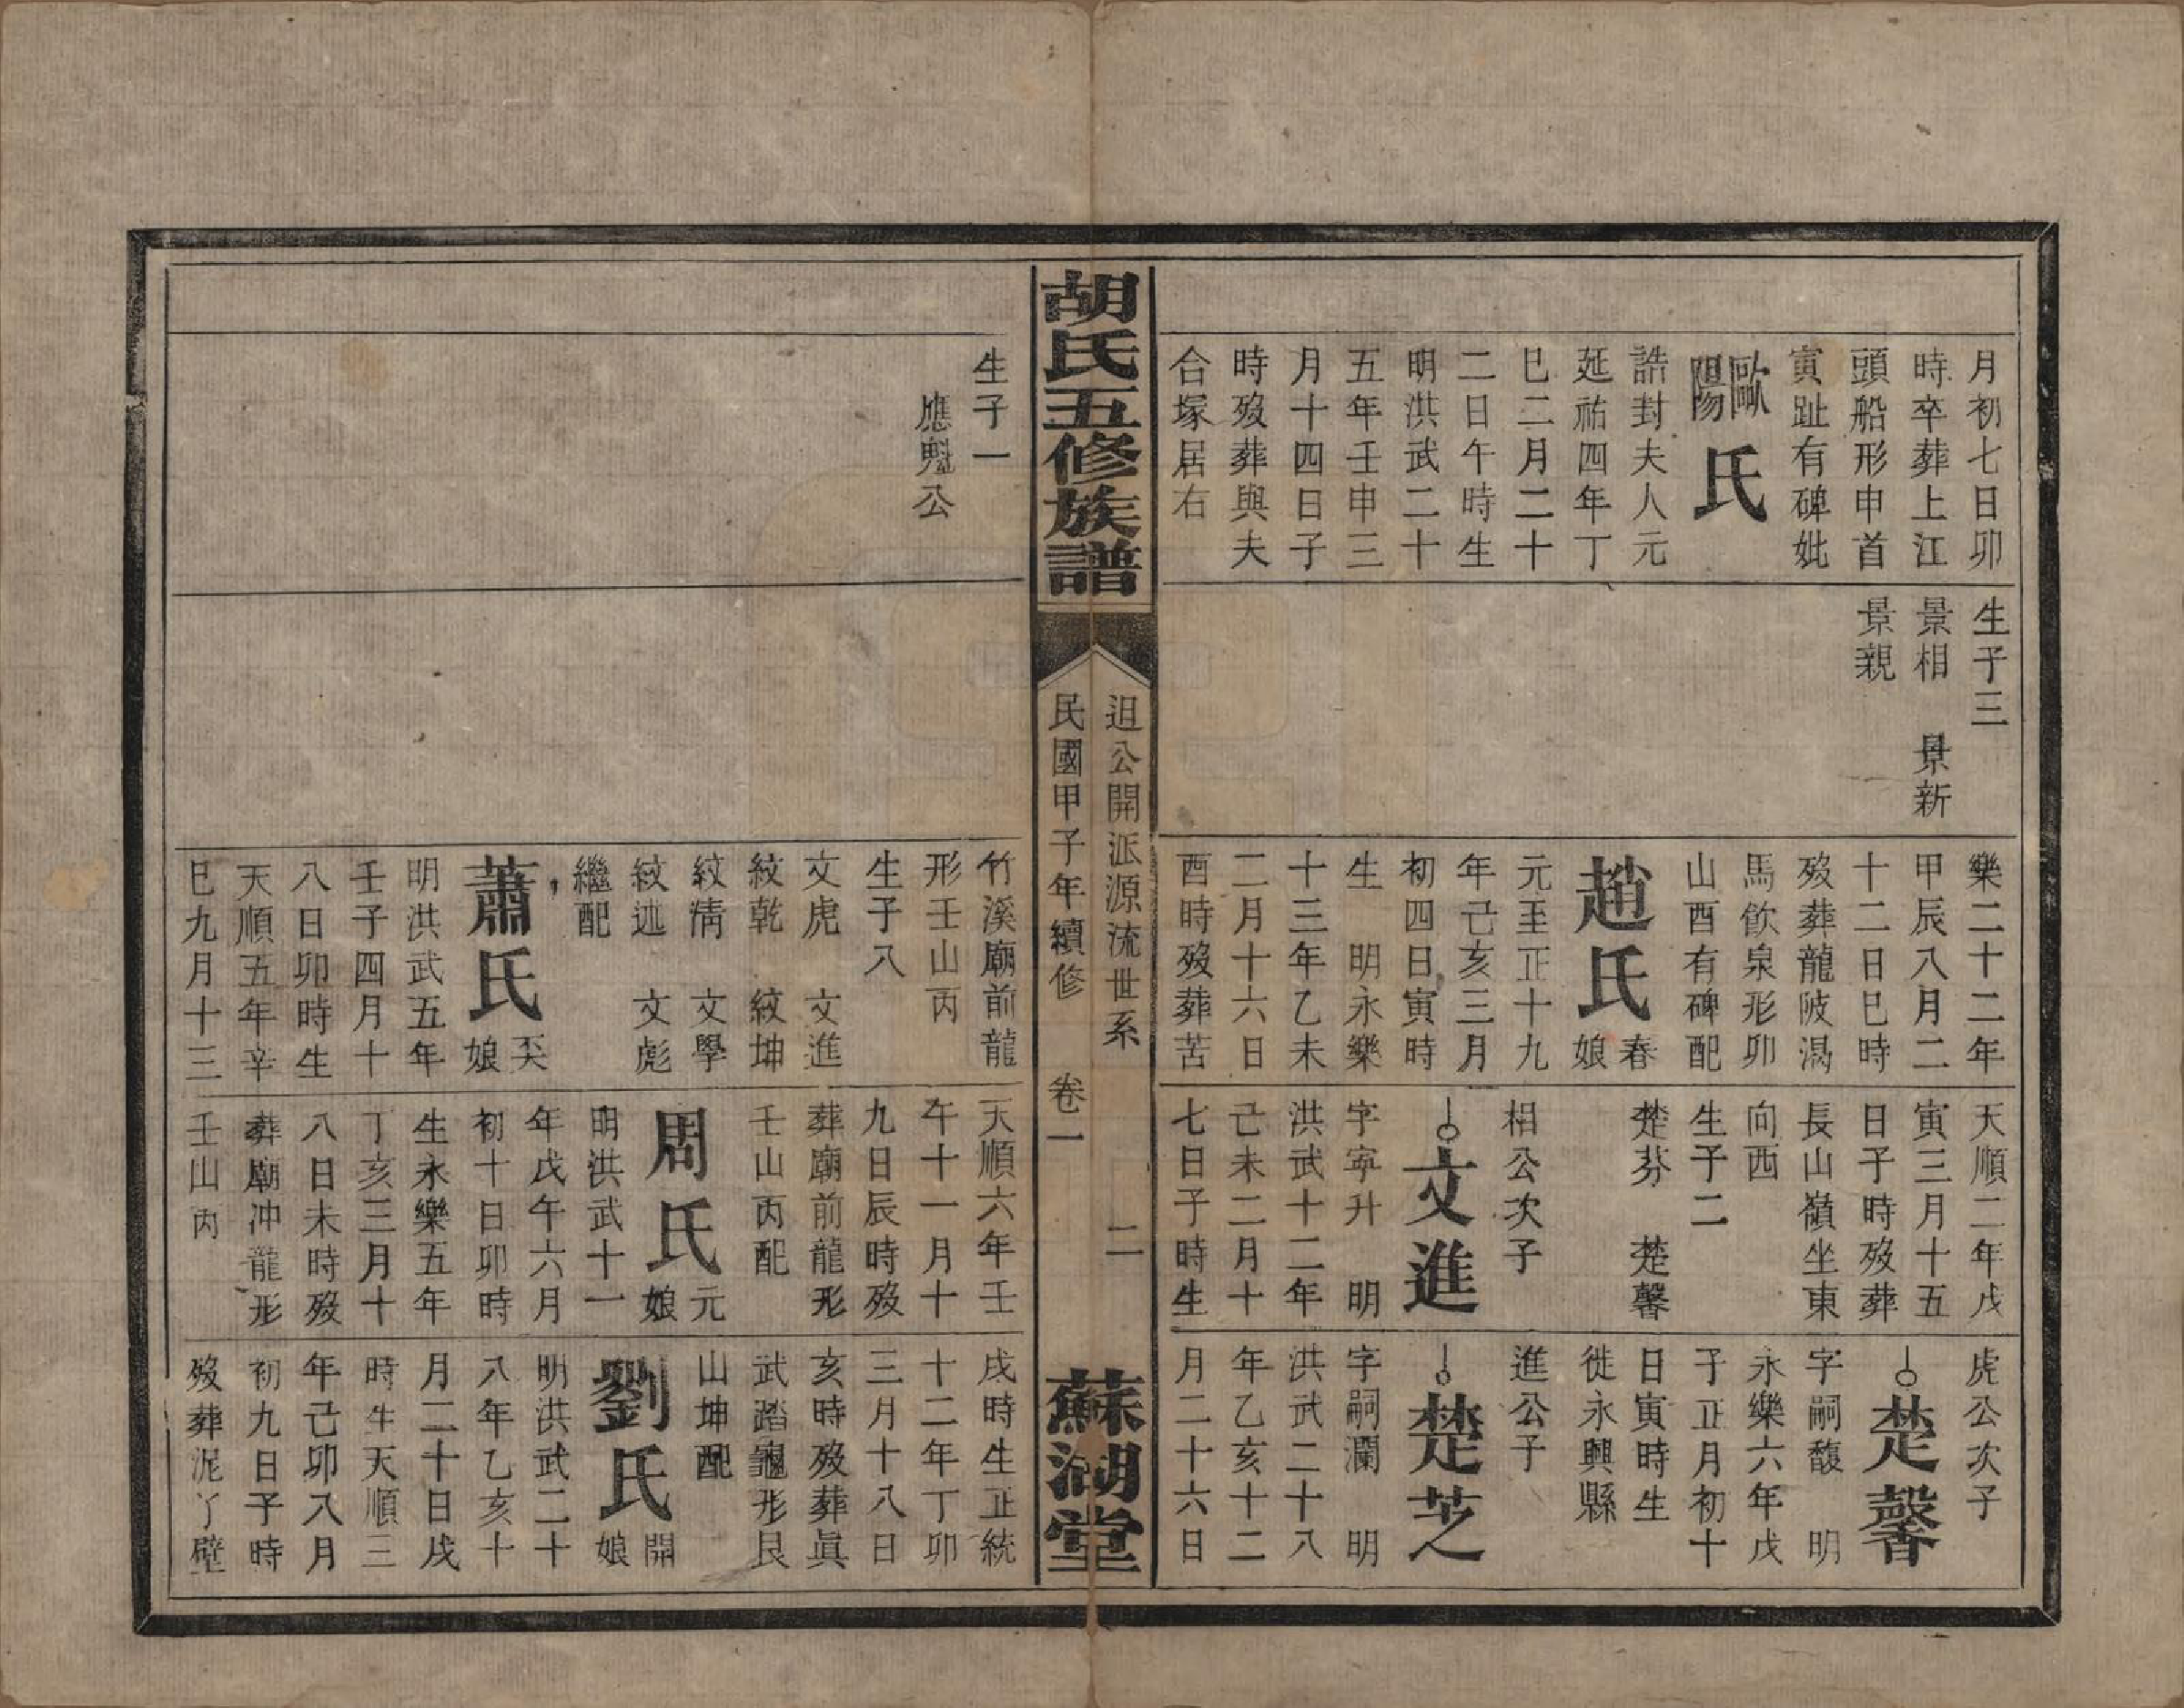 月初七日卯
時卒葬上江
頭船形申首
寅趾有碑妣
歐陽氏
誥封夫人元
延祐四年丁
巳二月二十
二日午時生
明洪武二十
五年壬申三
月十四日子
時歿葬與夫
合塚居右
生子三
景相　景新
景親
樂二十二年
甲辰八月二
十二日巳時
歿葬龍陂渴
馬飲泉形卯
山酉有碑配
趙氏春娘
元至正十九
年己亥三月
初四日寅時
生　明永樂
十三年乙未
二月十六日
酉時歿葬苦
天順二年戊
寅三月十五
日子時歿葬
長山嶺坐東
向西
生子二
楚芬　楚馨
相公次子
文進
字寧升　明
洪武十二年
己未二月十
七日子時生
虎公次子
楚馨
字嗣馥　明
永樂六年戊
子正月初十
日寅時生
徙永興縣
進公子
楚芝
字嗣瀾　明
洪武二十八
年乙亥十二
月二十六日
胡氏五修族譜
迌公開派源流世系　二
民國甲子年續修　卷一
蘇湖堂
生子一
應魁公
竹溪廟前龍
形壬山丙
生子八
文虎　文進
紋乾　紋坤
紋清　文學
紋述　文彪
繼配
蕭氏英娘
明洪武五年
壬子四月十
八日卯時生
天順五年辛
巳九月十三
天順六年壬
午十一月十
九日辰時歿
葬廟前龍形
壬山丙配
周氏元娘
明洪武十一
年戊午六月
初十日卯時
生永樂五年
丁亥三月十
八日未時歿
葬廟沖龍形
壬山丙
戌時生正統
十二年丁卯
三月十八日
亥時歿葬眞
武踏龜形艮
山坤配
劉氏開娘
明洪武二十
八年乙亥十
月二十日戌
時生天順三
年己卯八月
初九日子時
歿葬泥丫壁